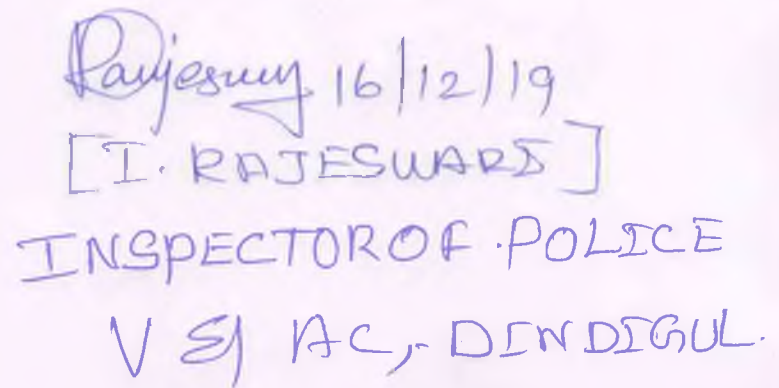 Rajeswary 16/12/19
[I. RAJESWARI]
INSPECTOR OF POLICE
V & AC, DINDIGUL.